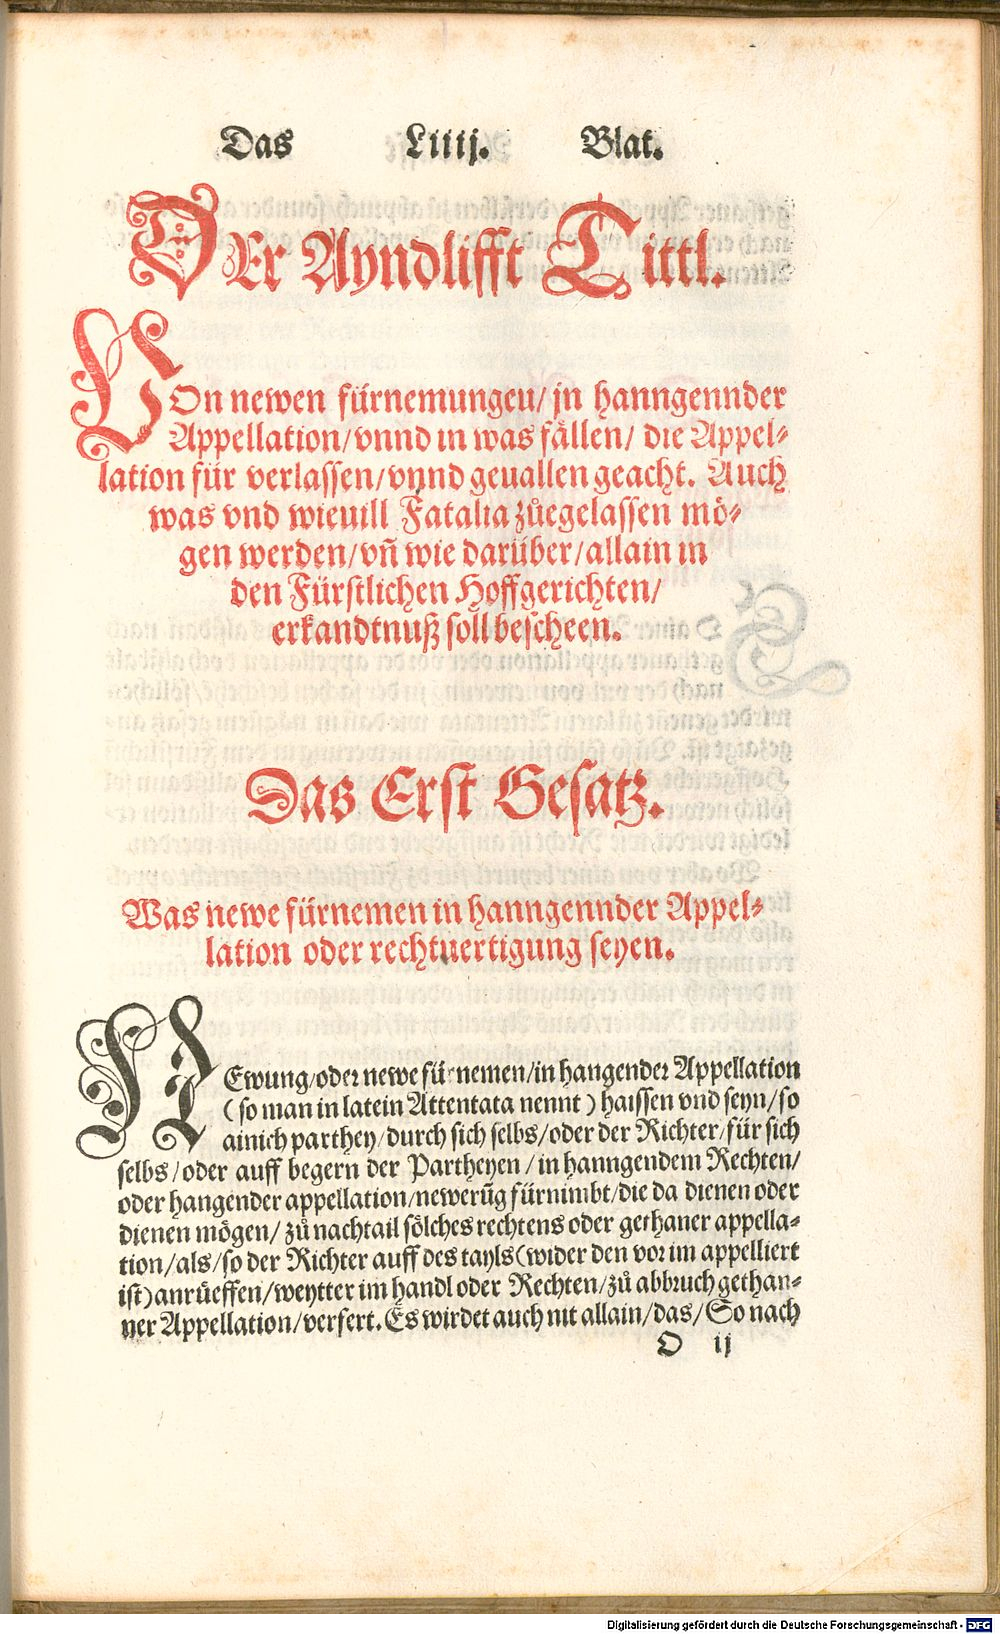 Das Liiij. Blat.
DEr Ayndlifft Tittl.
VOn newen fürnemungen/ jn hanngennder
Appellation/vnnd in was fällen/ die Appel⸗
lation für verlassen/vnnd geuallen geacht. Auch
was vnd wieuill Fatalia zůegelassen mö⸗
gen werden/vñ wie darüber/allain in
den Fürstlichen Hoffgerichten/
erkandtnuß soll bescheen.
Das Erst Gesatz.
Was newe fürnemen in hanngennder Appel⸗
lation oder rechtuertigung seyen.
NEwung/oder newe fürnemen/in hangender Appellation
(so man in latein Attentata nennt) haissen vnd seyn/so
ainich parthey/durch sich selbs/oder der Richter/für sich
selbs/oder auff begern der Partheyen/in hanngendem Rechten/
oder hangender appellation/newerũg fürnimbt/die da dienen oder
dienen mögen/ zů nachtail sölches rechtens oder gethaner appella⸗
tion/als/so der Richter auff des tayls(wider den vor im appelliert
ist)anrüeffen/weytter im handl oder Rechten/zů abbruch gethan⸗
ner Appellation/verfert. Es wirdet auch nit allain/das/So nach
O ij
Digitalisierung gefördert durch die Deutsche Forschungsgemeinschaft - DFG